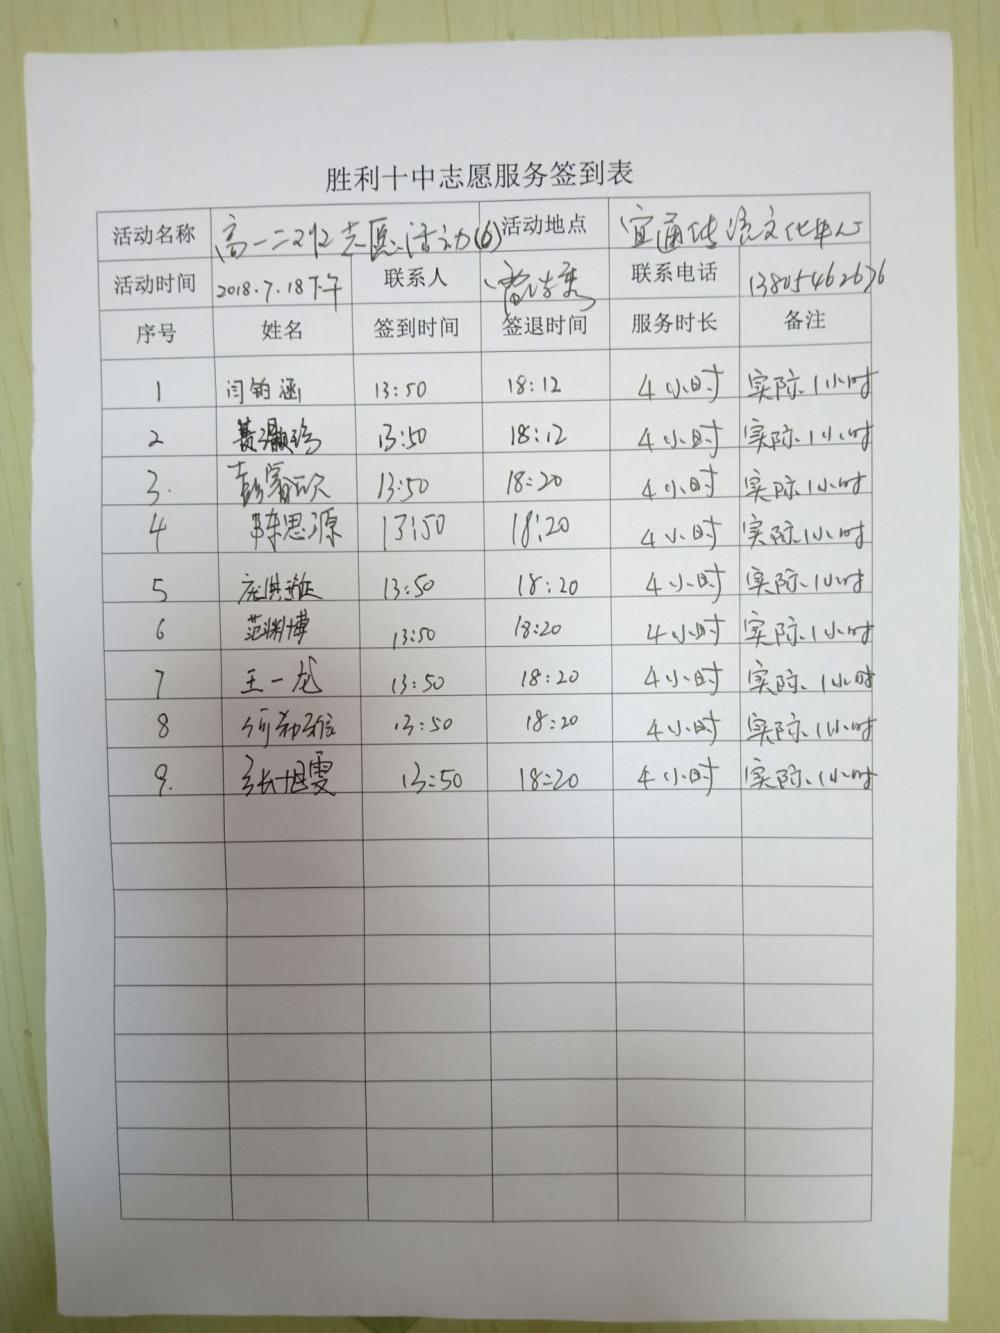 胜利十中志愿服务签到表
活动名称 高一二班志愿活动(6) 活动地点 宜通传统文化中心
活动时间 2018.7.18下午 联系人 联系电话 13805462676
序号 姓名 签到时间 签退时间 服务时长 备注
1 闫铂涵 13:50 18:12 4小时 实际1小时
2 13:50 18:12 4小时 实际1小时
3. 13:50 18:20 4小时 实际1小时
4 陈思源 13:50 18:20 4小时 实际1小时
5 13:50 18:20 4小时 实际1小时
6 范渊博 13:50 18:20 4小时 实际1小时
7 王一龙 13:50 18:20 4小时 实际1小时
8 13:50 18:20 4小时 实际1小时
9. 张旭雯 13:50 18:20 4小时 实际1小时